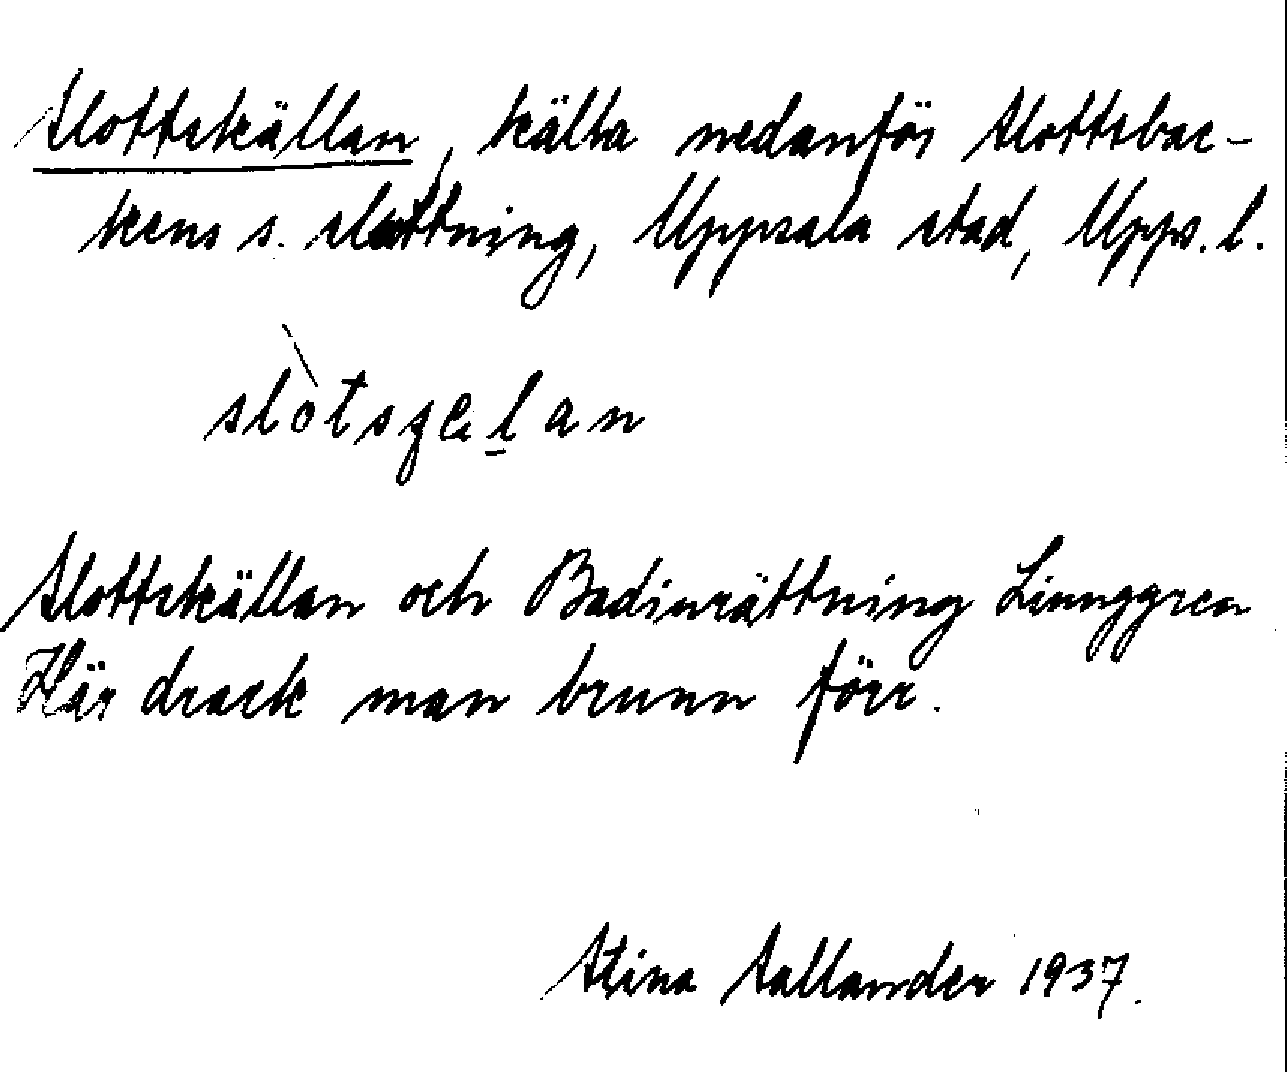 Slottskällan, källa nedanför Slottsbac-
kens s. sluttning, Uppsala stad, Upps. l.
Slottskällan och Badinrättning Linnggren
Här drack man brunn förr.
Stina Sallander 1937.